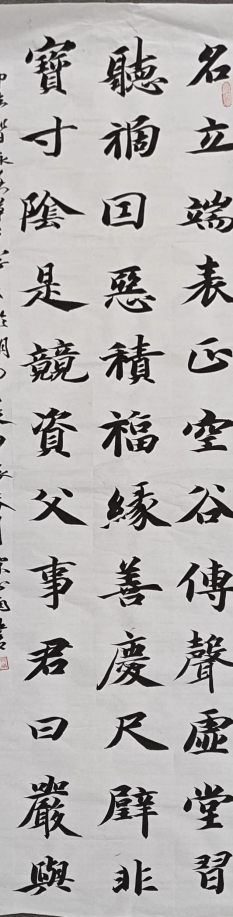 名立端表正空谷傳聲虛堂習
聽禍因惡積福緣善慶尺璧非
寶寸陰是競資父事君曰嚴與